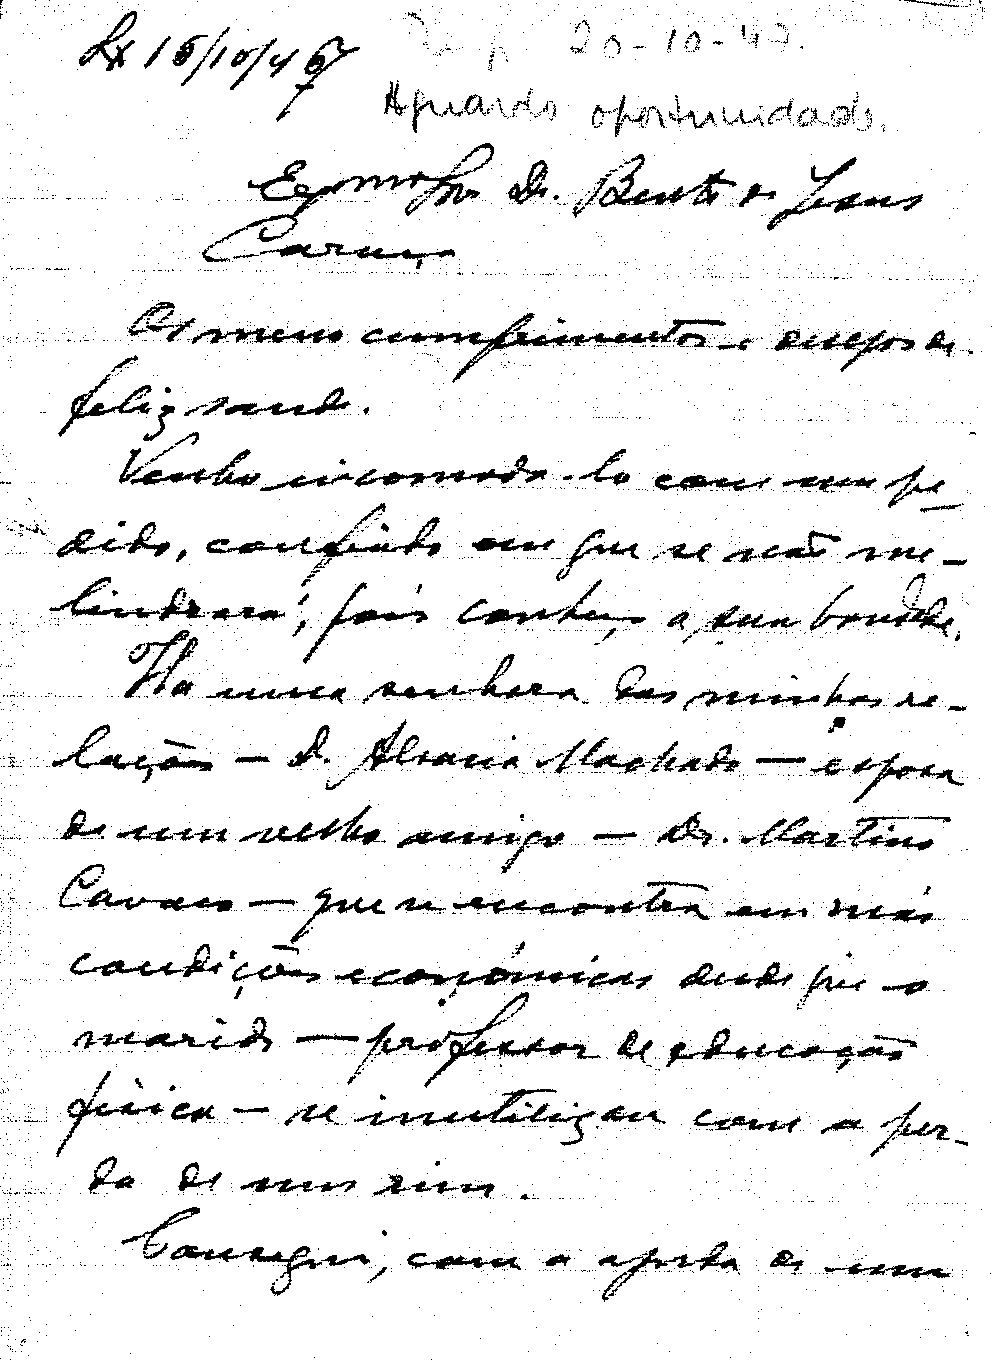 Lx 15/10/47
20-10-47.
Aguardo oportunidade.
Exmo Snr Dr. Bento de Jesus
Caraça
Os meus cumprimentos e desejos de
feliz saude.
Venho incomoda-lo com um pe-
dido, confiado em que se não me-
lindrará, pois conheço a sua bondade.
Ha uma senhora das minhas re-
lações — D. Alvacir Machado — esposa
de um velho amigo — Dr. Martins
Cavaco — que se encontra em más
condições económicas desde que o
marido — professor de educação
fisica — se inutilizou com a per-
da de um rim.
Consegui, com a ajuda de um